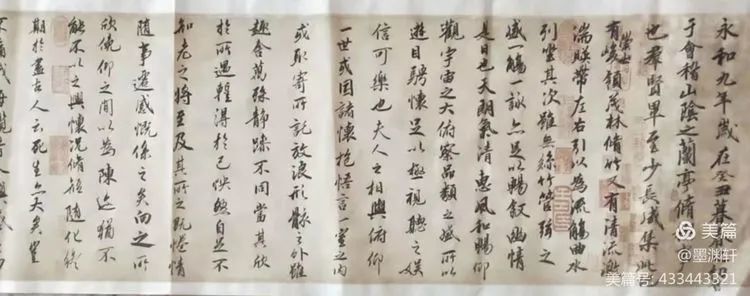 永和九年歲在癸丑暮
于會稽山陰之蘭亭脩
也羣賢畢至少長咸集此
崇山
有峻領茂林脩竹又有清流激
湍暎帶左右引以為流觴曲水
列坐其次雖無絲竹管弦之
盛一觴一詠亦足以暢敘幽情
是日也天朗氣清惠風和暢仰
觀宇宙之大俯察品類之盛所以
遊目騁懷足以極視聽之娛
信可樂也夫人之相與俯仰
一世或因諸懷抱悟言一室之內
或取寄所託放浪形骸之外雖
趣舍萬殊靜躁不同當其欣
於所遇暫得於己怏然自足不
知老之將至及其所之既惓情
隨事遷感慨係之矣向之所
欣俛仰之間以為陳迹猶不
能不以之興懷況脩短隨化終
期於盡古人云死生亦大矣豈
不痛哉每攬昔人興感
美篇
@墨渊轩
美篇号: 433443321